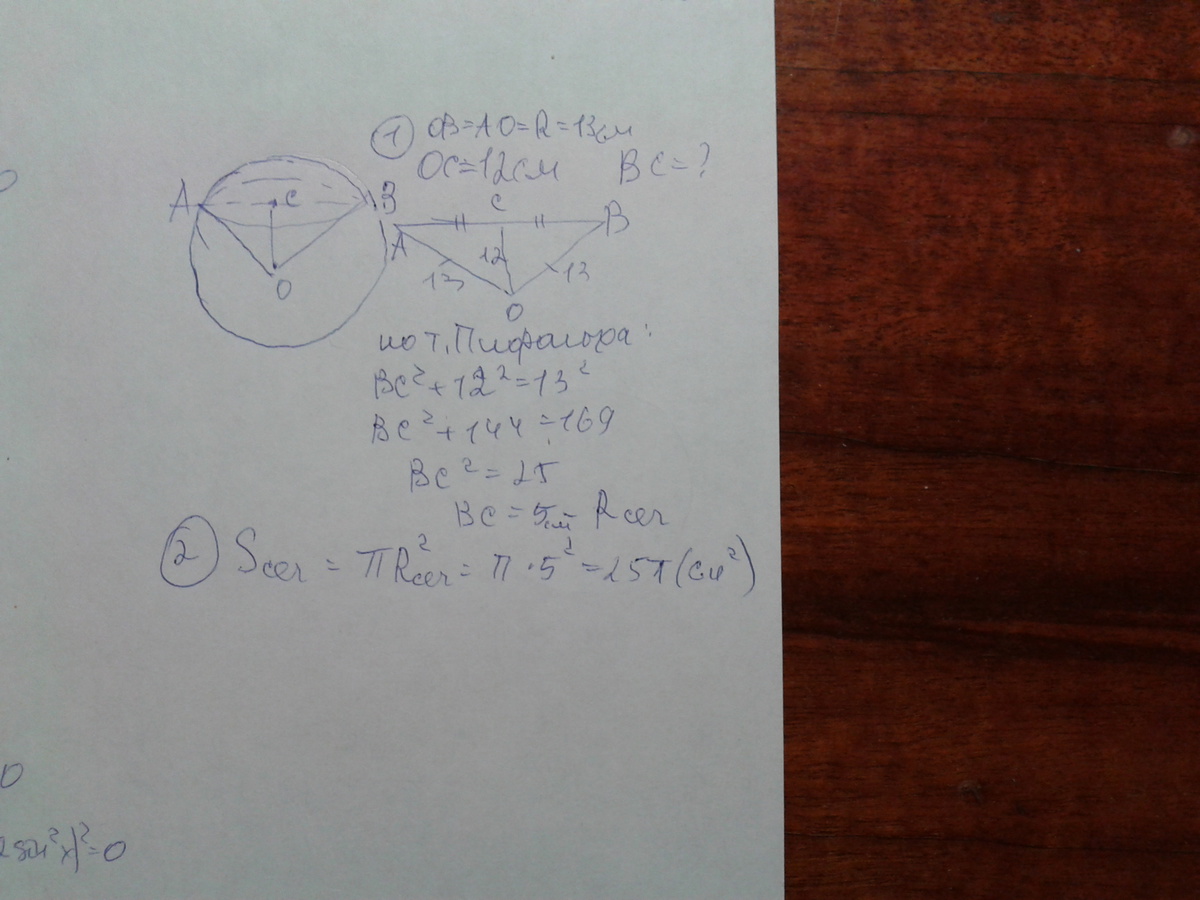 ① OB=AO=R=13см
OC=12см BC=?
A C B
O
A C B
13 12 13
O
по т. Пифагора:
BC²+12²=13²
BC²+144=169
BC²=25
BC=5см=Rсеч
② Sсеч = πRсеч² = π·5² = 25π(см²)
0
0
2sin²x)²=0